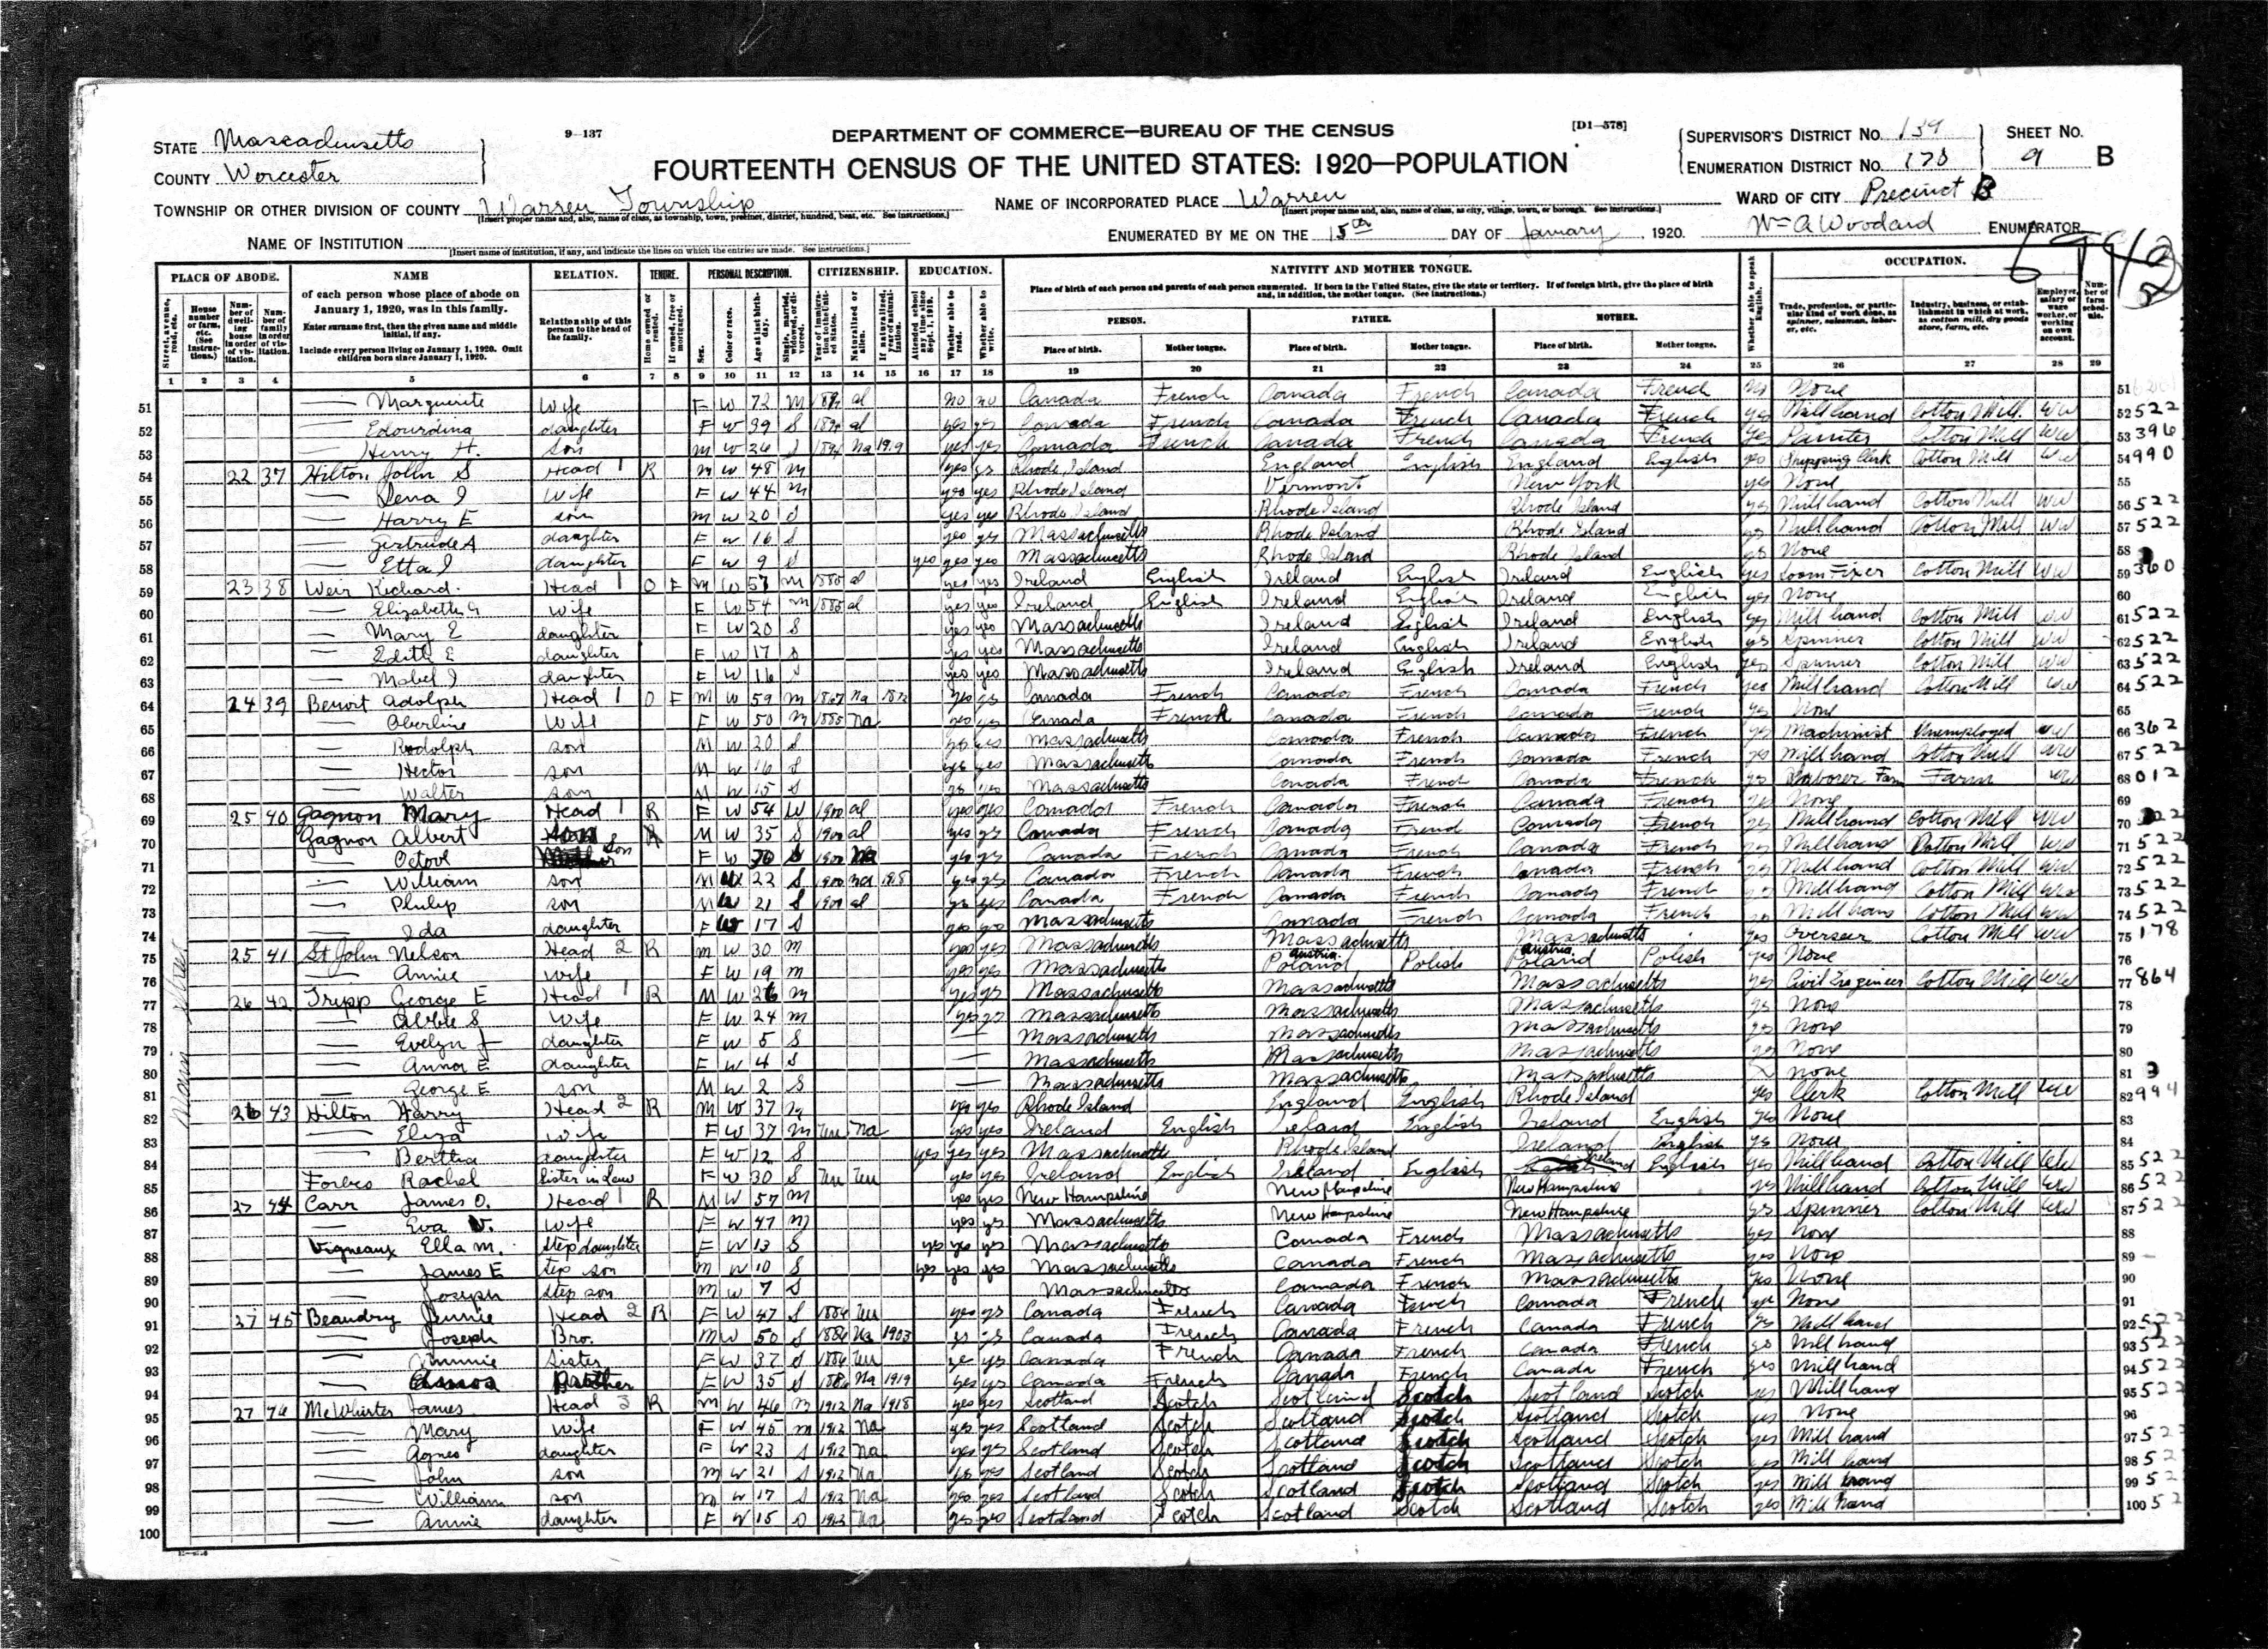 9-137
DEPARTMENT OF COMMERCE—BUREAU OF THE CENSUS
[D1-578]
FOURTEENTH CENSUS OF THE UNITED STATES: 1920—POPULATION
STATE Massachusetts
COUNTY Worcester
TOWNSHIP OR OTHER DIVISION OF COUNTY Warren Township
[Insert proper name and, also, name of class, as township, town, precinct, district, hundred, beat, etc. See instructions.]
NAME OF INSTITUTION
[Insert name of institution, if any, and indicate the lines on which the entries are made. See instructions.]
NAME OF INCORPORATED PLACE Warren
[Insert proper name and, also, name of class, as city, village, town, or borough. See instructions.]
ENUMERATED BY ME ON THE 15th DAY OF January, 1920.
SUPERVISOR'S DISTRICT No. 139
ENUMERATION DISTRICT No. 178
SHEET No. 9 B
WARD OF CITY Precinct B
Wm A Woodard ENUMERATOR
PLACE OF ABODE. NAME RELATION. TENURE. PERSONAL DESCRIPTION. CITIZENSHIP. EDUCATION. NATIVITY AND MOTHER TONGUE. OCCUPATION.
of each person whose place of abode on January 1, 1920, was in this family.
Enter surname first, then the given name and middle initial, if any.
Include every person living on January 1, 1920. Omit children born since January 1, 1920.
Relationship of this person to the head of the family.
Place of birth of each person and parents of each person enumerated. If born in the United States, give the state or territory. If of foreign birth, give the place of birth and, in addition, the mother tongue. (See instructions.)
PERSON. FATHER. MOTHER.
Place of birth. Mother tongue. Place of birth. Mother tongue. Place of birth. Mother tongue.
1 2 3 4 5 6 7 8 9 10 11 12 13 14 15 16 17 18 19 20 21 22 23 24 25 26 27 28 29
51 Marguerite Wife F W 72 M al no no Canada French Canada French Canada French No None
52 Edourdina daughter F W 39 S al yes yes Canada French Canada French Canada French yes Mill hand Cotton Mill W 522
53 Henry H. son M W S Na yes yes Canada French Canada French Canada French yes Painter Cotton Mill W 396
54 22 37 Hilton John S Head 1 R M W 48 M yes yes Rhode Island England English England English yes Shipping Clerk Cotton Mill W 990
55 Lena I wife F W 44 M yes yes Rhode Island Vermont New York yes None
56 Harry E son M W 20 S yes yes Rhode Island Rhode Island Rhode Island yes Mill hand Cotton Mill W 522
57 Gertrude A daughter F W 16 S yes yes Massachusetts Rhode Island Rhode Island yes Mill hand Cotton Mill W 522
58 Etta I daughter F W 9 S yes yes yes Massachusetts Rhode Island Rhode Island yes None
59 23 38 Weir Richard Head 1 O F M W 57 M 1885 al yes yes Ireland English Ireland English Ireland English yes Loom Fixer Cotton Mill W 360
60 Elizabeth A wife F W 54 M 1885 al yes yes Ireland English Ireland English Ireland English yes None
61 Mary E daughter F W 20 S yes yes Massachusetts Ireland English Ireland English yes Mill hand Cotton Mill W 522
62 Edith E daughter F W 17 S yes yes Massachusetts Ireland English Ireland English yes Spinner Cotton Mill W 522
63 Mabel I daughter F W 16 S yes yes Massachusetts Ireland English Ireland English yes Spinner Cotton Mill W 522
64 24 39 Benoit Adolph Head 1 O F M W 59 M 1867 Na 1872 yes yes Canada French Canada French Canada French yes Mill hand Cotton Mill W 522
65 Oberline Wife F W 50 M 1885 Na yes yes Canada French Canada French Canada French yes None
66 Rodolph son M W 20 S yes yes Massachusetts Canada French Canada French yes Machinist Unemployed W 362
67 Hector son M W 16 S yes yes Massachusetts Canada French Canada French yes Mill hand Cotton Mill W 522
68 Walter son M W 15 S yes yes Massachusetts Canada French Canada French yes Laborer Farm Farm W 012
69 25 40 Gagnon Mary Head 1 R F W 54 W 1900 al yes yes Canada French Canada French Canada French yes None
70 Gagnon Albert son M W 35 S 1900 al yes yes Canada French Canada French Canada French yes Mill hand Cotton Mill W
71 Octove Son F W 30 S 1900 Na yes yes Canada French Canada French Canada French yes Mill hand Cotton Mill W 522
72 William son M W 22 S 1900 Na 1918 yes yes Canada French Canada French Canada French yes Mill hand Cotton Mill W 522
73 Philip son M W 21 S 1900 al yes yes Canada French Canada French Canada French yes Mill hand Cotton Mill W 522
74 Ida daughter F W 17 S yes yes Massachusetts Canada French Canada French yes Mill hand Cotton Mill W 522
75 25 41 St John Nelson Head 2 R M W 30 M yes yes Massachusetts Massachusetts Massachusetts yes Overseer Cotton Mill W 178
76 Annie wife F W 19 M yes yes Massachusetts Austria Poland Polish Austria Poland Polish yes None
77 26 42 Tripp George E Head 1 R M W 26 M yes yes Massachusetts Massachusetts Massachusetts yes Civil Engineer Cotton Mill W 864
78 Abbie S Wife F W 24 M yes yes Massachusetts Massachusetts Massachusetts yes None
79 Evelyn J daughter F W 5 S Massachusetts Massachusetts Massachusetts yes None
80 Anna E daughter F W 4 S Massachusetts Massachusetts Massachusetts yes None
81 George E son M W 2 S Massachusetts Massachusetts Massachusetts none
82 26 43 Hilton Harry Head 2 R M W 37 M yes yes Rhode Island England English Rhode Island yes Clerk Cotton Mill W 994
83 Eliza wife F W 37 M Un Na yes yes Ireland English Ireland English Ireland English yes None
84 Bertha daughter F W 12 S yes yes yes Massachusetts Rhode Island Ireland English yes None
85 Forbes Rachel Sister in Law F W 30 S Un Un yes yes Ireland English Ireland English Ireland English yes Mill hand Cotton Mill W 522
86 27 44 Carr James O. Head 1 R M W 57 M yes yes New Hampshire New Hampshire New Hampshire yes Mill hand Cotton Mill W 522
87 Eva V. wife F W 47 M yes yes Massachusetts New Hampshire New Hampshire yes Spinner Cotton Mill W 522
88 Vigneaux Ella M. Step daughter F W 13 S yes yes yes Massachusetts Canada French Massachusetts yes None
89 James E Step son M W 10 S yes yes yes Massachusetts Canada French Massachusetts yes None
90 Joseph Step son M W 7 S Massachusetts Canada French Massachusetts yes None
91 27 45 Beaudry Jennie Head 2 R F W 47 S 1886 Un yes yes Canada French Canada French Canada French yes None
92 Joseph Bro. M W 50 S 1886 Na 1903 yes yes Canada French Canada French Canada French yes Mill hand 522
93 Sister F W 37 S 1886 Un yes yes Canada French Canada French Canada French yes Mill hand 522
94 Brother W 35 S 1886 Na 1919 yes yes Canada French Canada French Canada French yes Mill hand 522
95 27 McWhirter James Head 3 R M W 46 M 1912 Na 1918 yes yes Scotland Scotch Scotland Scotch Scotland Scotch yes Mill hand 522
96 Mary Wife F W 45 M 1912 Na yes yes Scotland Scotch Scotland Scotch Scotland Scotch yes None
97 Agnes daughter F W 23 S 1912 Na yes yes Scotland Scotch Scotland Scotch Scotland Scotch yes Mill hand 522
98 John son M W 21 S 1912 Na yes yes Scotland Scotch Scotland Scotch Scotland Scotch yes Mill hand 52
99 William son M W 17 S 1912 Na yes yes Scotland Scotch Scotland Scotch Scotland Scotch yes Mill hand 52
100 Annie daughter F W 15 S 1912 Na yes yes Scotland Scotch Scotland Scotch Scotland Scotch yes Mill hand 52
Main Street